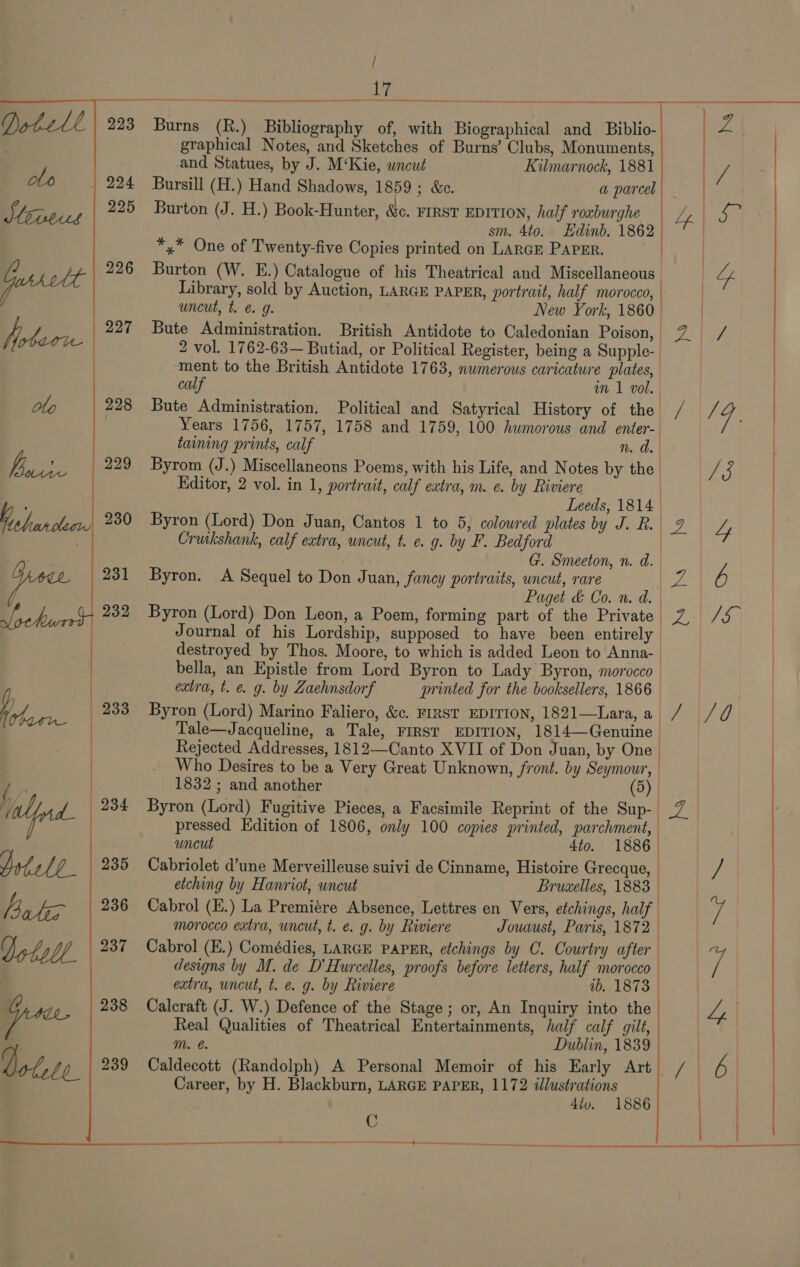 17
Dobell 223 Burns (R.) Bibliography of, with Biographical and Biblio- 2
graphical Notes, and Sketches of Burns’ Clubs, Monuments,
and Statues, by J. M‘Kie, uncut Kilmarnock, 1881
do 224 Bursill (H.) Hand Shadows, 1859 ; &c. a parcel /
Stevens 225 Burton (J. H.) Book-Hunter, &c. FIRST EDITION, half roxburghe 4 5
sm. 4to. Edinb. 1862
*,* One of Twenty-five Copies printed on LARGE PAPER.
Garrett 226 Burton (W. E.) Catalogue of his Theatrical and Miscellaneous 4
Library, sold by Auction, LARGE PAPER, portrait, half morocco,
uncut, t. e. g. New York, 1860
Hobson 227 Bute Administration. British Antidote to Caledonian Poison, 2 /
2 vol. 1762-63—Butiad, or Political Register, being a Supple-
ment to the British Antidote 1763, numerous caricature plates,
calf in 1 vol.
do 228 Bute Administration. Political and Satyrical History of the / 19
Years 1756, 1757, 1758 and 1759, 100 humorous and enter-
taining prints, calf n. d.
229 Byrom (J.) Miscellaneons Poems, with his Life, and Notes by the 13
Editor, 2 vol. in 1, portrait, calf extra, m. e. by Riviere
Leeds, 1814
Richardson 230 Byron (Lord) Don Juan, Cantos 1 to 5, coloured plates by J. R. 2 4
Cruikshank, calf extra, uncut, t. e. g. by F. Bedford
G. Smeeton, n. d.
Grose 231 Byron. A Sequel to Don Juan, fancy portraits, uncut, rare 2 6
Paget & Co. n. d.
232 Byron (Lord) Don Leon, a Poem, forming part of the Private 2 15
Journal of his Lordship, supposed to have been entirely
destroyed by Thos. Moore, to which is added Leon to Anna-
bella, an Epistle from Lord Byron to Lady Byron, morocco
extra, t. e. g. by Zaehnsdorf printed for the booksellers, 1866
Hobson 233 Byron (Lord) Marino Faliero, &c. FIRST EDITION, 1821—Lara, a / 10
Tale—Jacqueline, a Tale, FIRST EDITION, 1814—Genuine
Rejected Addresses, 1812—Canto XVII of Don Juan, by One
Who Desires to be a Very Great Unknown, front. by Seymour,
1832 ; and another (5)
Walford 234 Byron (Lord) Fugitive Pieces, a Facsimile Reprint of the Sup- 2
pressed Edition of 1806, only 100 copies printed, parchment,
uncut 4to. 1886
Dobell 235 Cabriolet d’une Merveilleuse suivi de Cinname, Histoire Grecque, /
etching by Hanriot, uncut Bruxelles, 1883
Bates 236 Cabrol (E.) La Premiére Absence, Lettres en Vers, etchings, half 7
morocco extra, uncut, t. e. g. by Riviere Jouaust, Paris, 1872
Dobell 237 Cabrol (E.) Comédies, LARGE PAPER, etchings by C. Courtry after 7
designs by M. de D’Hurcelles, proofs before letters, half morocco
extra, uncut, t. e. g. by Riviere ib. 1873
Grose 238 Calcraft (J. W.) Defence of the Stage ; or, An Inquiry into the 4
Real Qualities of Theatrical Entertainments, half calf gilt,
m. e. Dublin, 1839
Dobell 239 Caldecott (Randolph) A Personal Memoir of his Early Art / 6
Career, by H. Blackburn, LARGE PAPER, 1172 illustrations
4to. 1886
C